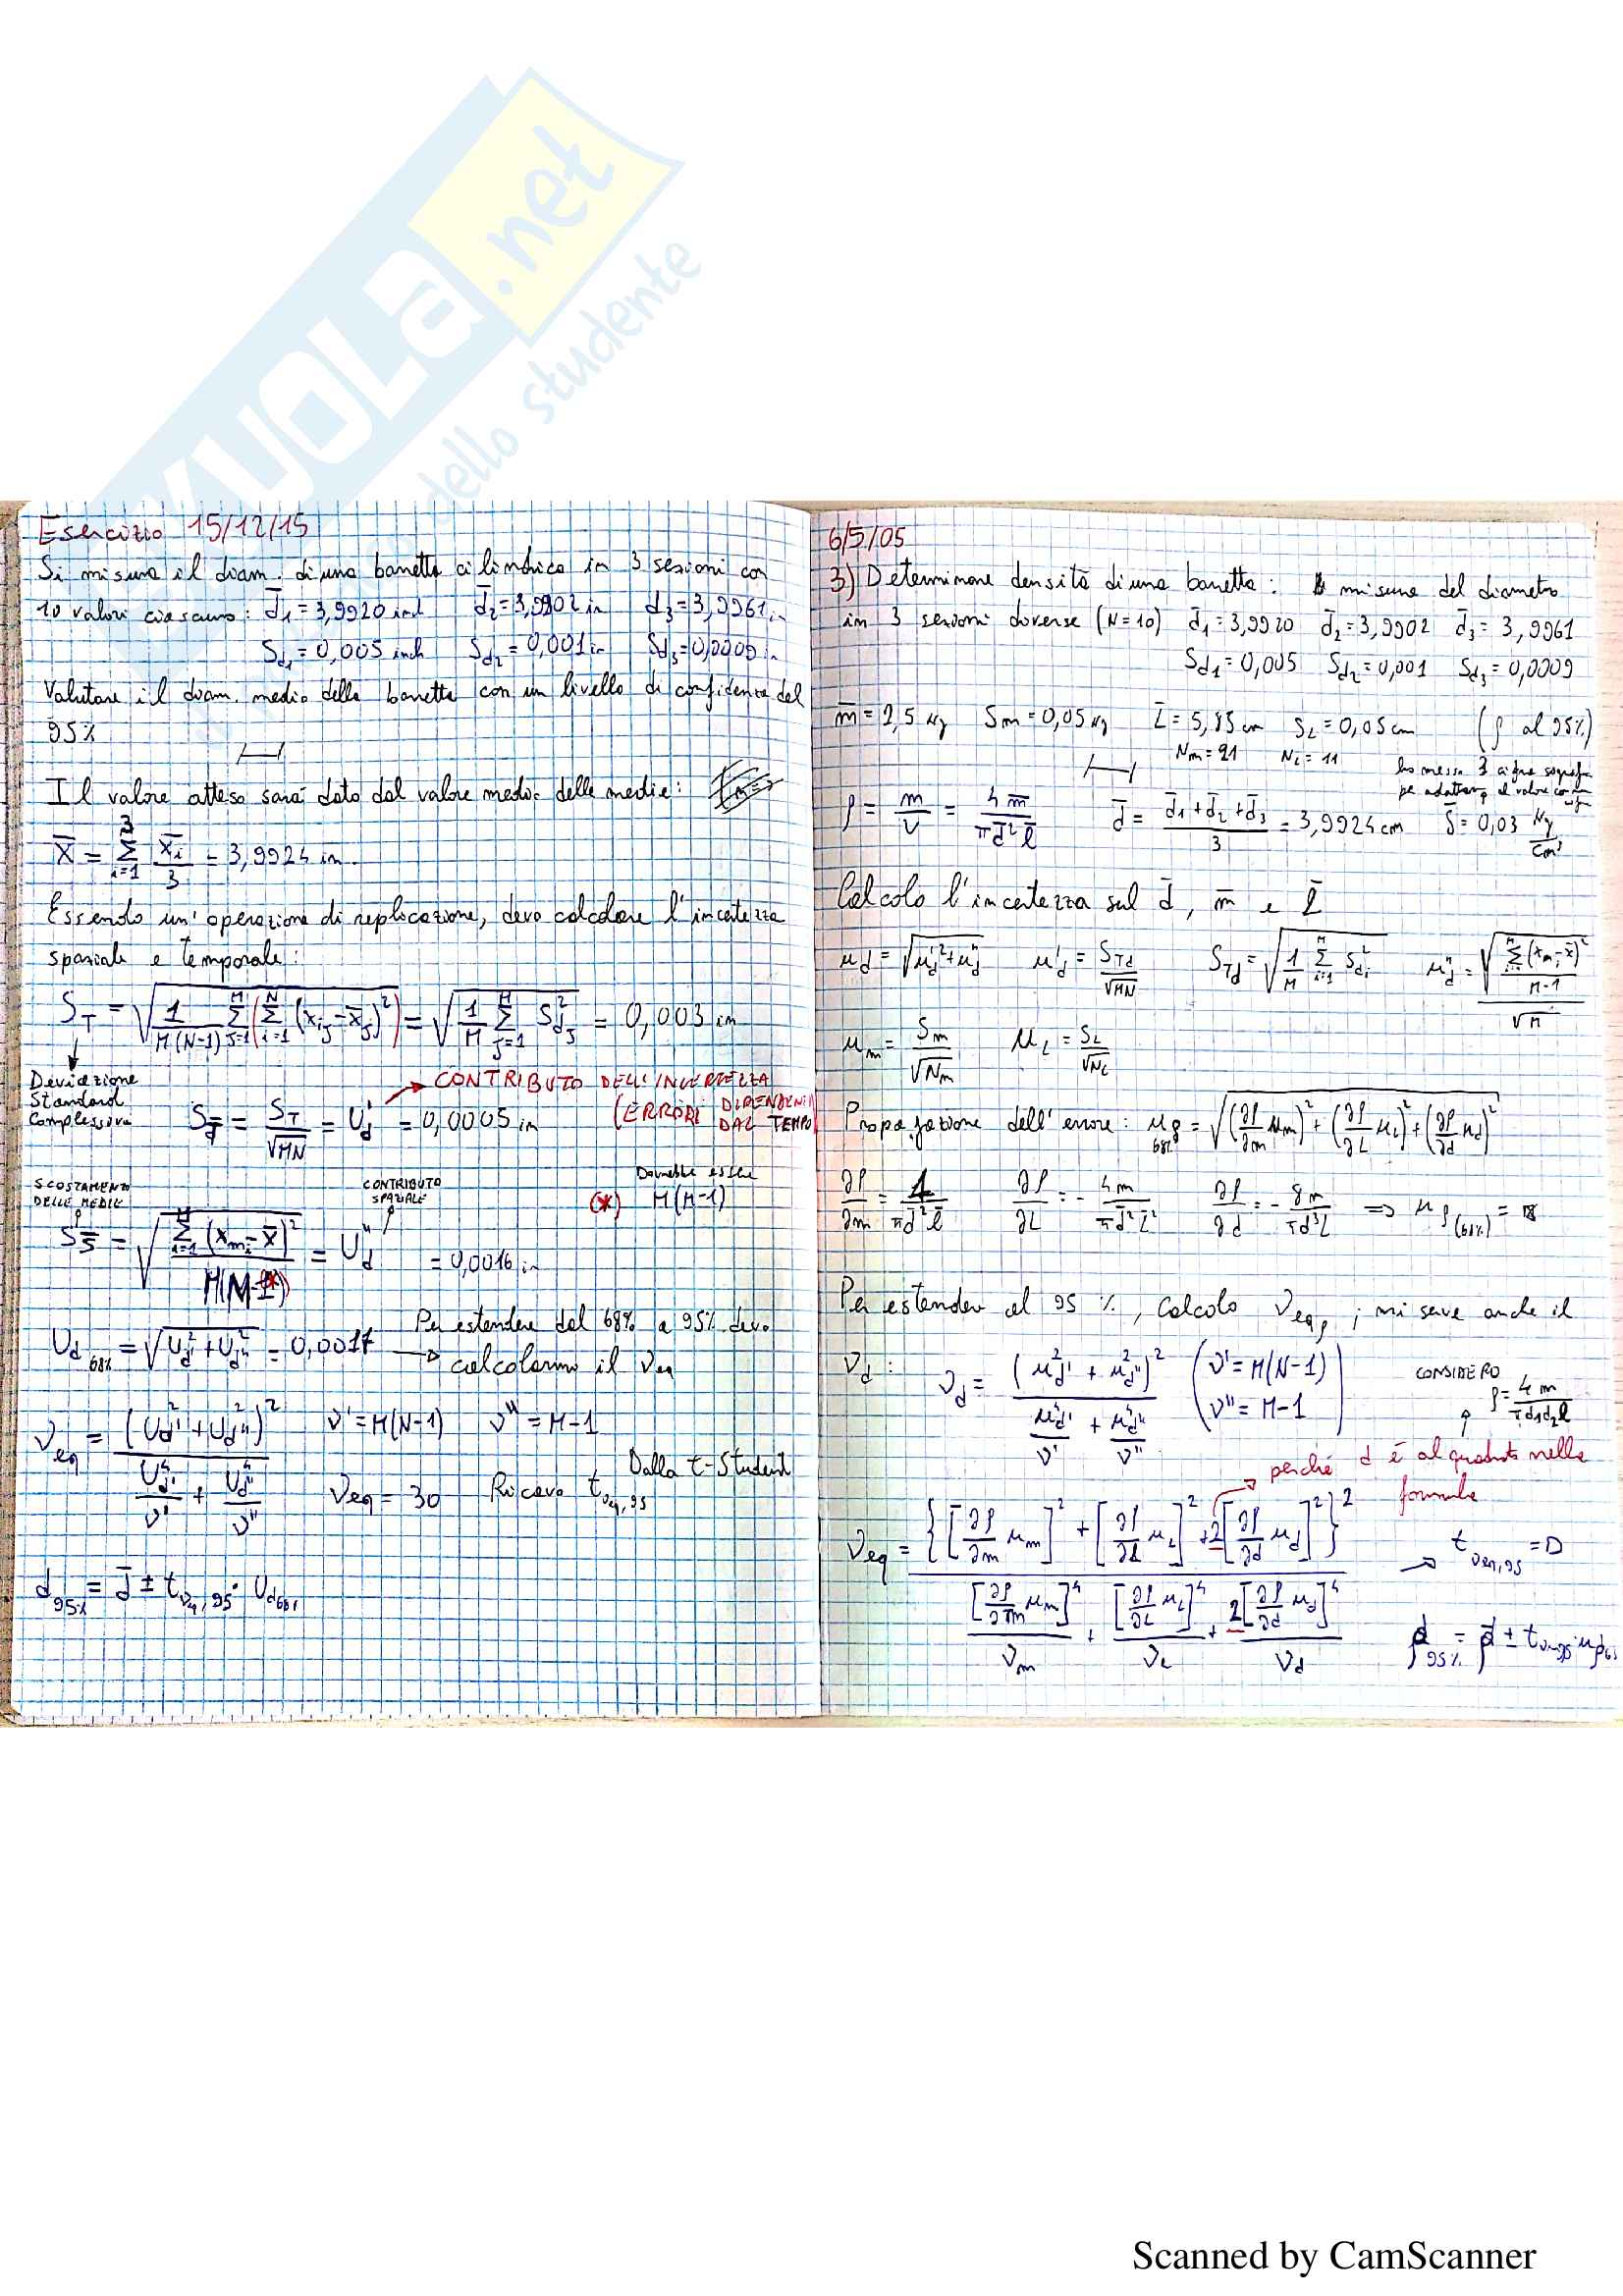 SKUOLA.net
dello studente
Esercizio 15/12/15
Si misura il diam. di una barretta cilindrica in 3 sezioni con
10 valori ciascuno: d̄1 = 3,9920 inch d̄2 = 3,9902 in d̄3 = 3,9961 in
Sd1 = 0,005 inch Sd2 = 0,001 in Sd3 = 0,0009 in
Valutare il diam. medio della barretta con un livello di confidenza del
95%
Il valore atteso sarà dato dal valore medio delle medie:
X̄ = Σ(i=1, 3) x̄i/3 = 3,9924 in
Essendo un'operazione di replicazione, devo calcolare l'incertezza
spaziale e temporale:
ST = √(1/(M(N-1)) Σ(j=1, M) (Σ(i=1, N) (xij - x̄j)²)) = √(1/M Σ(j=1, M) S²dj) = 0,003 in
Deviazione
Standard
Complessiva
CONTRIBUTO DELL'INCERTEZZA
(ERRORI DIPENDENTI
DAL TEMPO)
Sd̄ = ST/√MN = U'd = 0,0005 in
SCOSTAMENTO
DELLE MEDIE
CONTRIBUTO
SPAZIALE
(*) Dovrebbe essere
M(M-1)
= √(Σ(i=1, M) (xmi - x̄)² / M(M-1)) (*) = U"d = 0,0016 in
Ud 68% = √(U'd² + U"d²) = 0,0017
Per estendere dal 68% a 95% devo
calcolarmi il νeq
νeq = (Ud'² + Ud"²)² / (Ud'⁴/ν' + Ud"⁴/ν") ν' = M(N-1) ν" = M-1
νeq = 30 Ricavo tνeq,95 Dalla t-Student
d95% = d̄ ± tνeq,95 · Ud68%
6/5/05
3) Determinare densità di una barretta: misura del diametro
in 3 sezioni diverse (N=10) d̄1 = 3,9920 d̄2 = 3,9902 d̄3 = 3,9961
Sd1 = 0,005 Sd2 = 0,001 Sd3 = 0,0009
m̄ = 2,5 Kg Sm = 0,05 Kg L̄ = 5,85 cm SL = 0,05 cm (ρ al 95%)
Nm = 21 NL = 11
ho messo 3 cifre signif.
per adattare il valore con
ρ = m/V = 4m̄/(πd̄²l̄) d̄ = (d̄1 + d̄2 + d̄3)/3 = 3,9924 cm ρ̄ = 0,03 Kg/cm³
Calcolo l'incertezza sul d̄, m̄ e L̄
μd = √(μ'd² + μ"d²) μ'd = STd/√MN STd = √(1/M Σ(i=1, M) S²di) μ"d = √(Σ(xmi - x̄)²/(M-1)) / √M
μm = Sm/√Nm μL = SL/√NL
Propagazione dell'errore: μρ 68% = √((∂ρ/∂m μm)² + (∂ρ/∂L μL)² + (∂ρ/∂d μd)²)
∂ρ/∂m = 4/(πd̄²l̄) ∂ρ/∂L = - 4m/(πd̄²L²) ∂ρ/∂d = - 8m/(πd³L) ⇒ μρ(68%) =
Per estendere al 95%, calcolo νeqρ; mi serve anche il
νd: νd = (μ²d' + μ²d")² / (μ⁴d'/ν' + μ⁴d"/ν") (ν' = M(N-1)
ν" = M-1)
CONSIDERO
ρ = 4m/(πd1d2l)
perché d è al quadrato nella
formula
νeq = {[∂ρ/∂m μm]² + [∂ρ/∂L μL]² + 2[∂ρ/∂d μd]²}² / ([∂ρ/∂m μm]⁴/νm + [∂ρ/∂L μL]⁴/νL + 2[∂ρ/∂d μd]⁴/νd)
→ tνeq,95 =
ρ95% = ρ̄ ± tνeq95 · μρ68
Scanned by CamScanner